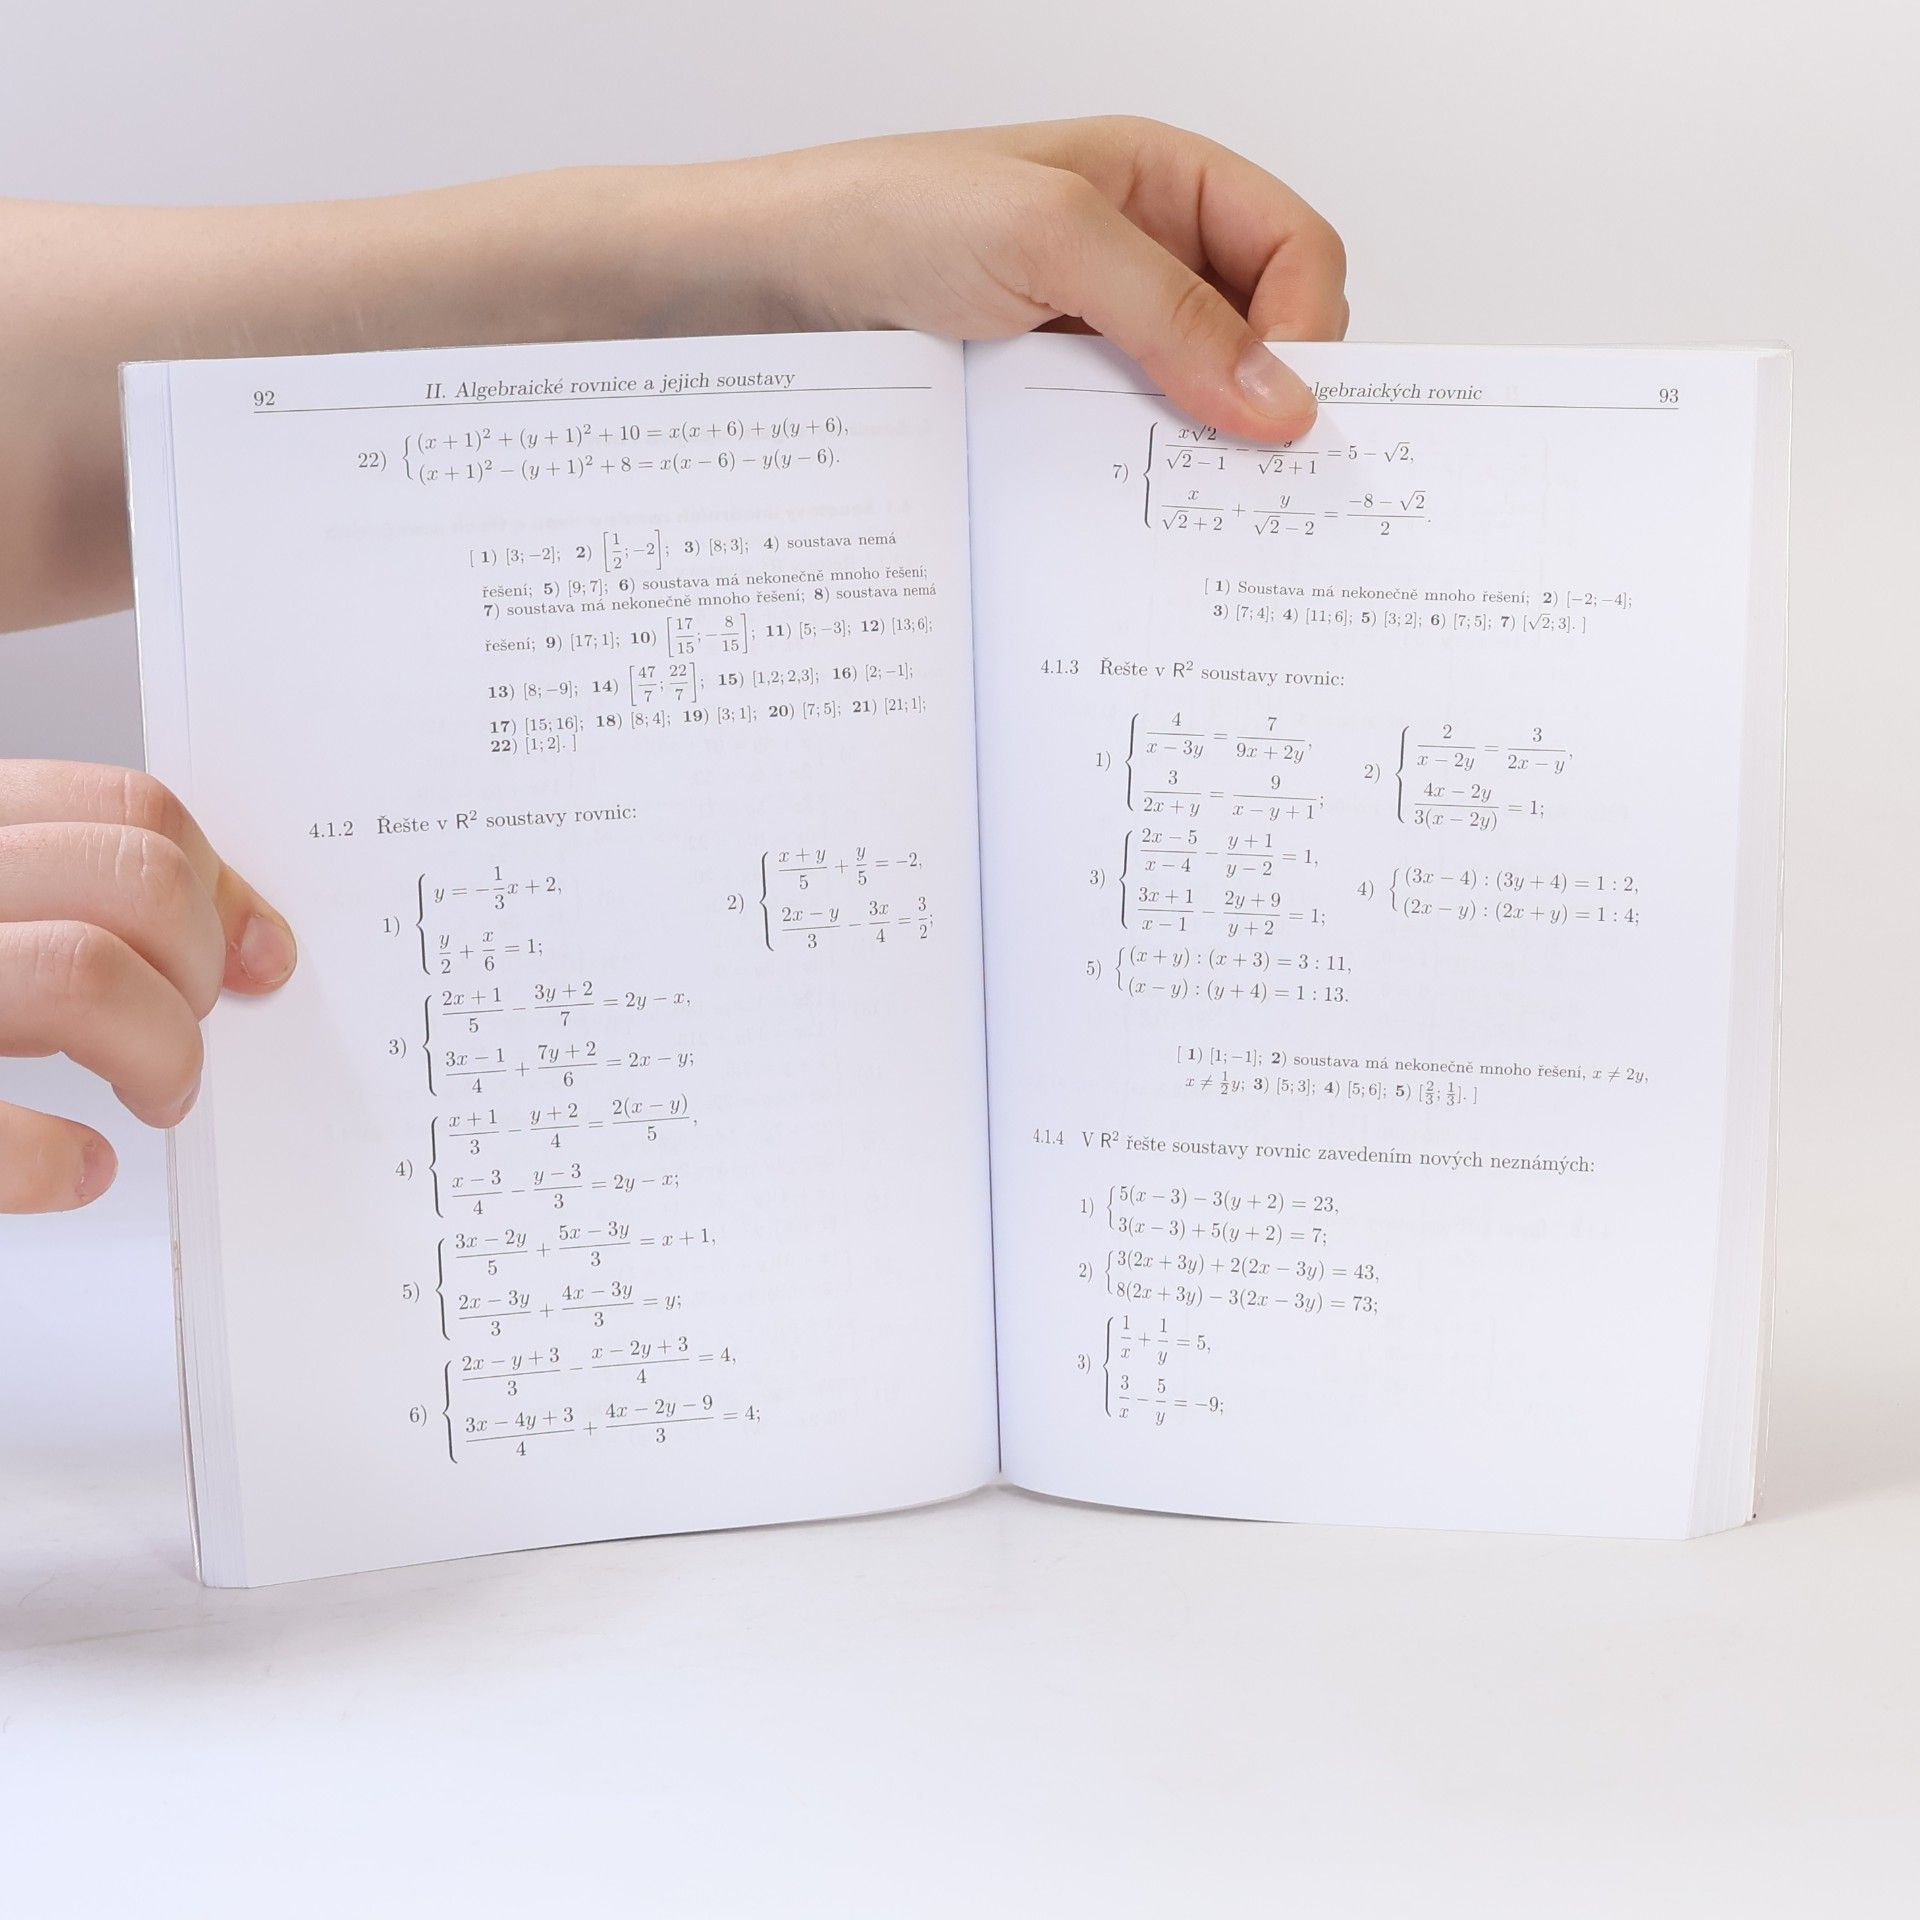 92 II. Algebraické rovnice a jejich soustavy
22) {(x + 1)² + (y + 1)² + 10 = x(x + 6) + y(y + 6),
(x + 1)² − (y + 1)² + 8 = x(x − 6) − y(y − 6).
[ 1) [3; −2]; 2) [1/2; −2]; 3) [8; 3]; 4) soustava nemá
řešení; 5) [9; 7]; 6) soustava má nekonečně mnoho řešení;
7) soustava má nekonečně mnoho řešení; 8) soustava nemá
řešení; 9) [17; 1]; 10) [17/15; −8/15]; 11) [5; −3]; 12) [13; 6];
13) [8; −9]; 14) [47/7; 22/7]; 15) [1,2; 2,3]; 16) [2; −1];
17) [15; 16]; 18) [8; 4]; 19) [3; 1]; 20) [7; 5]; 21) [21; 1];
22) [1; 2]. ]
4.1.2 Řešte v R² soustavy rovnic:
1) {y = −1/3 x + 2,
y/2 + x/6 = 1;
2) {(x + y)/5 + y/5 = −2,
(2x − y)/3 − 3x/4 = 3/2;
3) {(2x + 1)/5 − (3y + 2)/7 = 2y − x,
(3x − 1)/4 + (7y + 2)/6 = 2x − y;
4) {(x + 1)/3 − (y + 2)/4 = 2(x − y)/5,
(x − 3)/4 − (y − 3)/3 = 2y − x;
5) {(3x − 2y)/5 + (5x − 3y)/3 = x + 1,
(2x − 3y)/3 + (4x − 3y)/3 = y;
6) {(2x − y + 3)/3 − (x − 2y + 3)/4 = 4,
(3x − 4y + 3)/4 + (4x − 2y − 9)/3 = 4;
algebraických rovnic 93
7) {x√2/(√2 − 1) − y/(√2 + 1) = 5 − √2,
x/(√2 + 2) + y/(√2 − 2) = (−8 − √2)/2.
[ 1) Soustava má nekonečně mnoho řešení; 2) [−2; −4];
3) [7; 4]; 4) [11; 6]; 5) [3; 2]; 6) [7; 5]; 7) [√2; 3]. ]
4.1.3 Řešte v R² soustavy rovnic:
1) {4/(x − 3y) = 7/(9x + 2y),
3/(2x + y) = 9/(x − y + 1);
2) {2/(x − 2y) = 3/(2x − y),
(4x − 2y)/(3(x − 2y)) = 1;
3) {(2x − 5)/(x − 4) − (y + 1)/(y − 2) = 1,
(3x + 1)/(x − 1) − (2y + 9)/(y + 2) = 1;
4) {(3x − 4) : (3y + 4) = 1 : 2,
(2x − y) : (2x + y) = 1 : 4;
5) {(x + y) : (x + 3) = 3 : 11,
(x − y) : (y + 4) = 1 : 13.
[ 1) [1; −1]; 2) soustava má nekonečně mnoho řešení, x ≠ 2y,
x ≠ 1/2 y; 3) [5; 3]; 4) [5; 6]; 5) [2/3; 1/3]. ]
4.1.4 V R² řešte soustavy rovnic zavedením nových neznámých:
1) {5(x − 3) − 3(y + 2) = 23,
3(x − 3) + 5(y + 2) = 7;
2) {3(2x + 3y) + 2(2x − 3y) = 43,
8(2x + 3y) − 3(2x − 3y) = 73;
3) {1/x + 1/y = 5,
3/x − 5/y = −9;